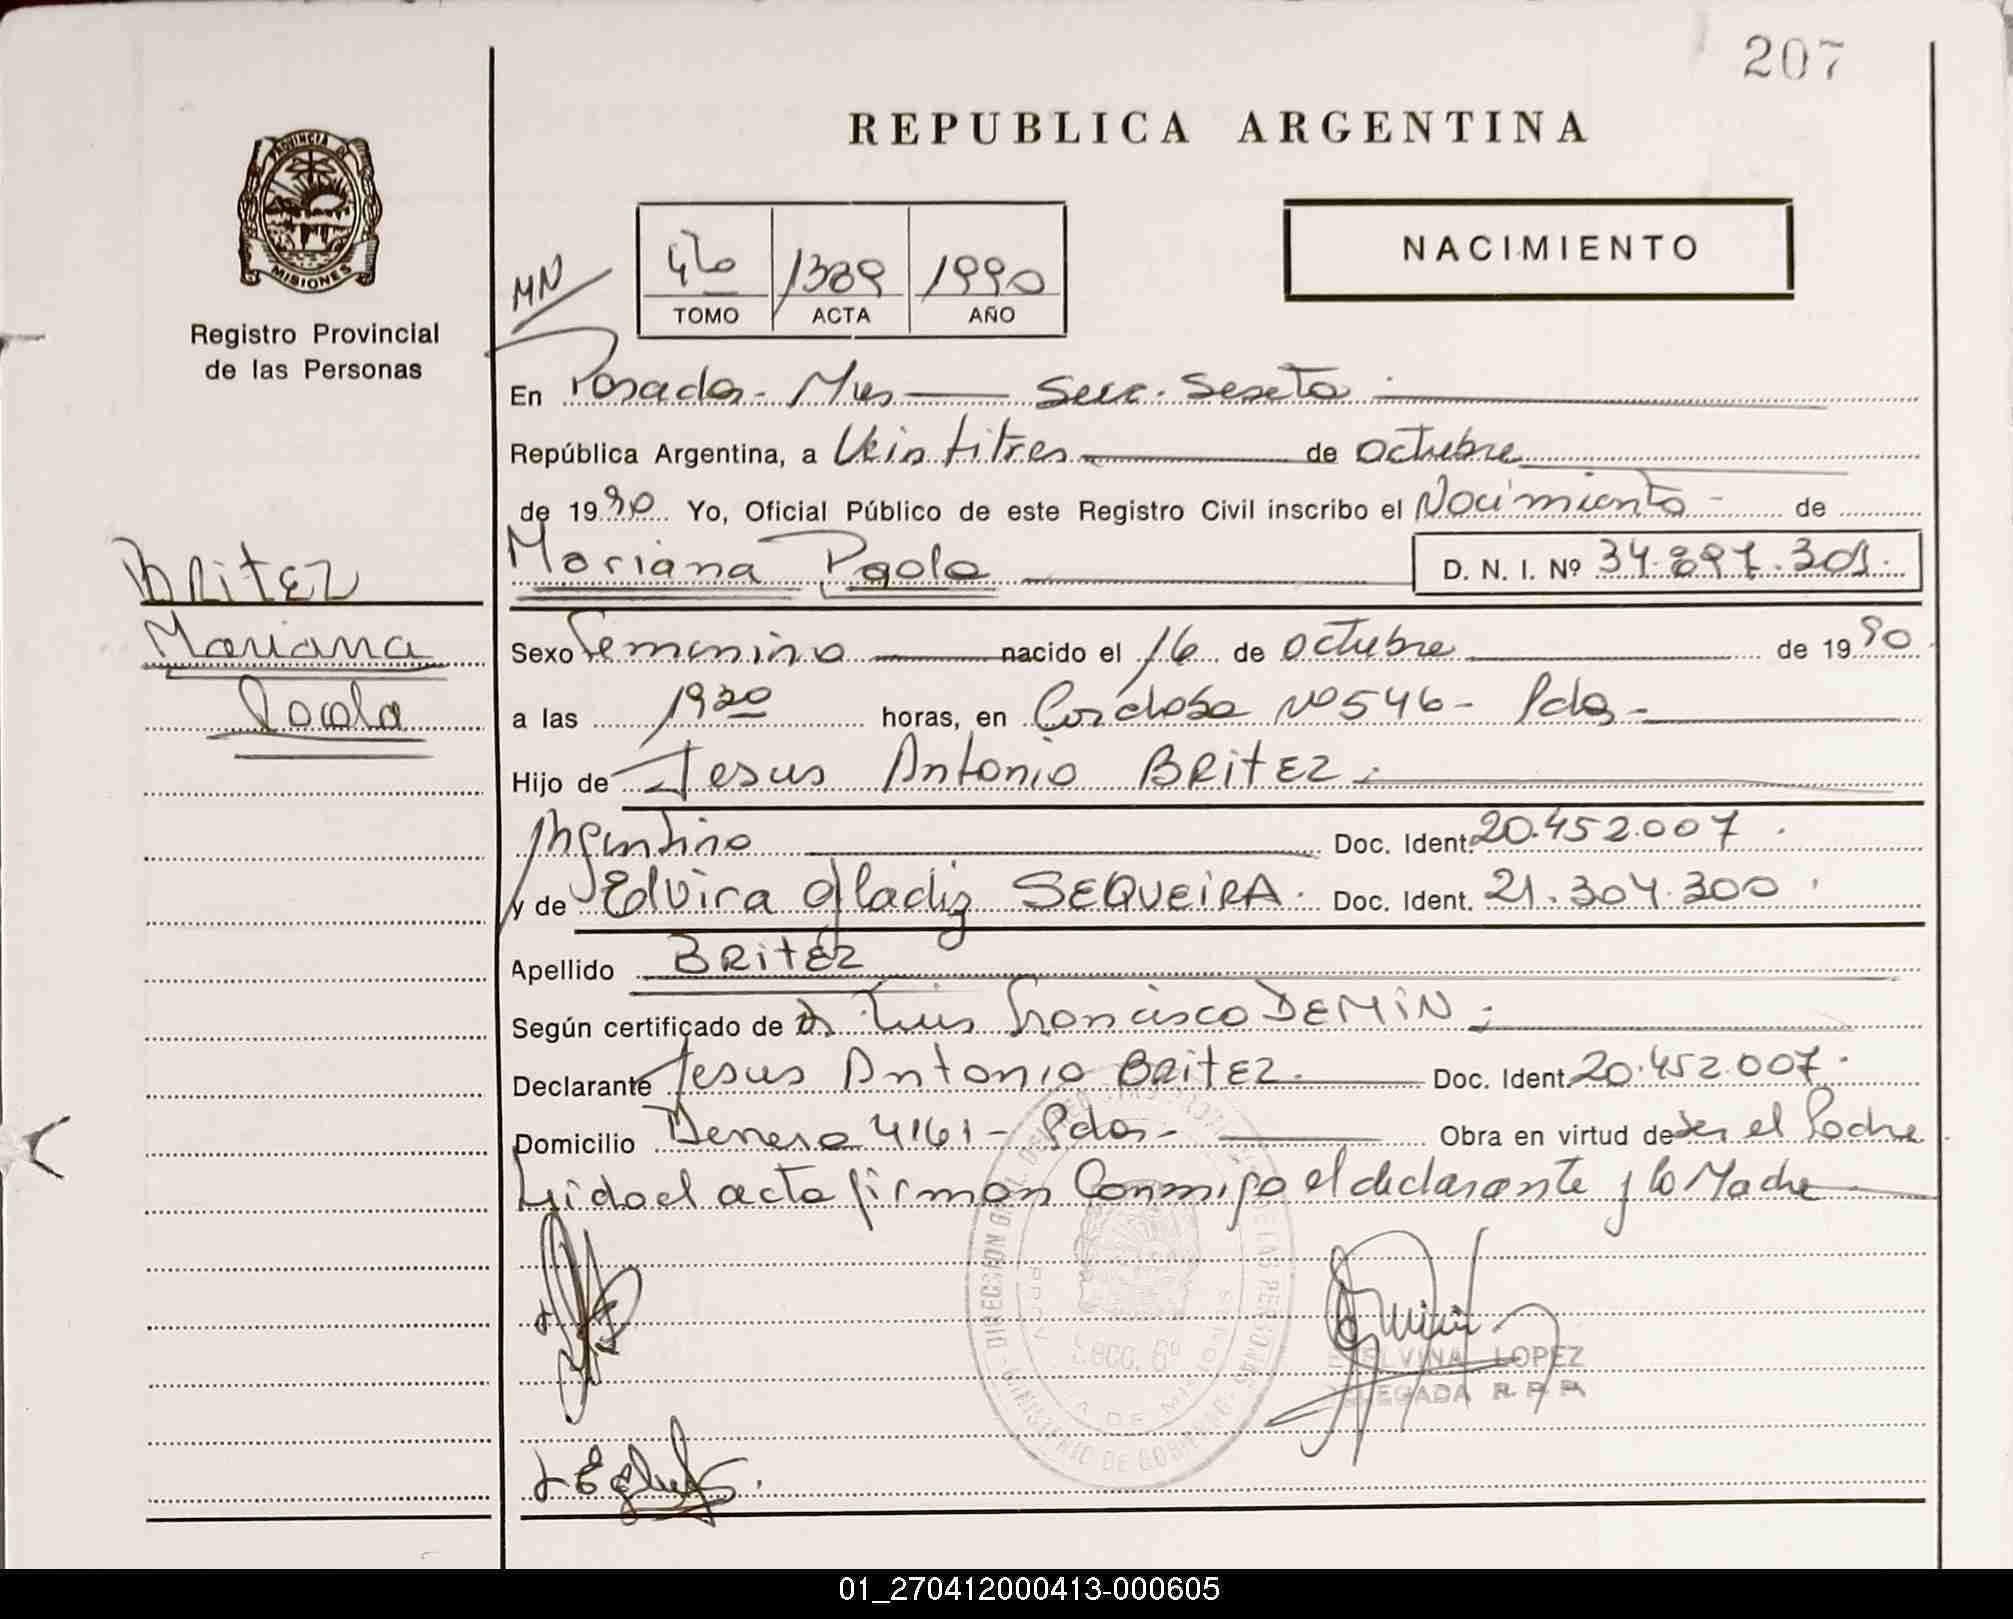 207
REPUBLICA ARGENTINA
PROVINCIA DE
MISIONES
Registro Provincial
de las Personas
NACIMIENTO
MN
1389 1990
TOMO ACTA AÑO
En Posadas - Mnes — Secc. Sexta
República Argentina, a Veintitres de Octubre
de 1990 Yo, Oficial Público de este Registro Civil inscribo el Nacimiento - de
Mariana Paola D. N. I. Nº 34.897.301.
BRITEZ
Mariana
Paola
Sexo Femenino nacido el 16 de Octubre de 1990
a las 1920 horas, en Cordoba Nº 546 - Pdas -
Hijo de Jesus Antonio BRITEZ
Argentino Doc. Ident. 20.452.007.
y de Edvira Gladiz SEQUEIRA. Doc. Ident. 21.304.300.
Apellido BRITEZ
Según certificado de Dr Luis Francisco DEMIN
Declarante Jesus Antonio BRITEZ. Doc. Ident. 20.452.007.
Domicilio 4161 - Pdas - Obra en virtud de ser el Padre
Leida el acta firman Conmigo el declarante y la Madre
Secc. 6º
LOPEZ
DELEGADA R. P. P.
01_270412000413-000605